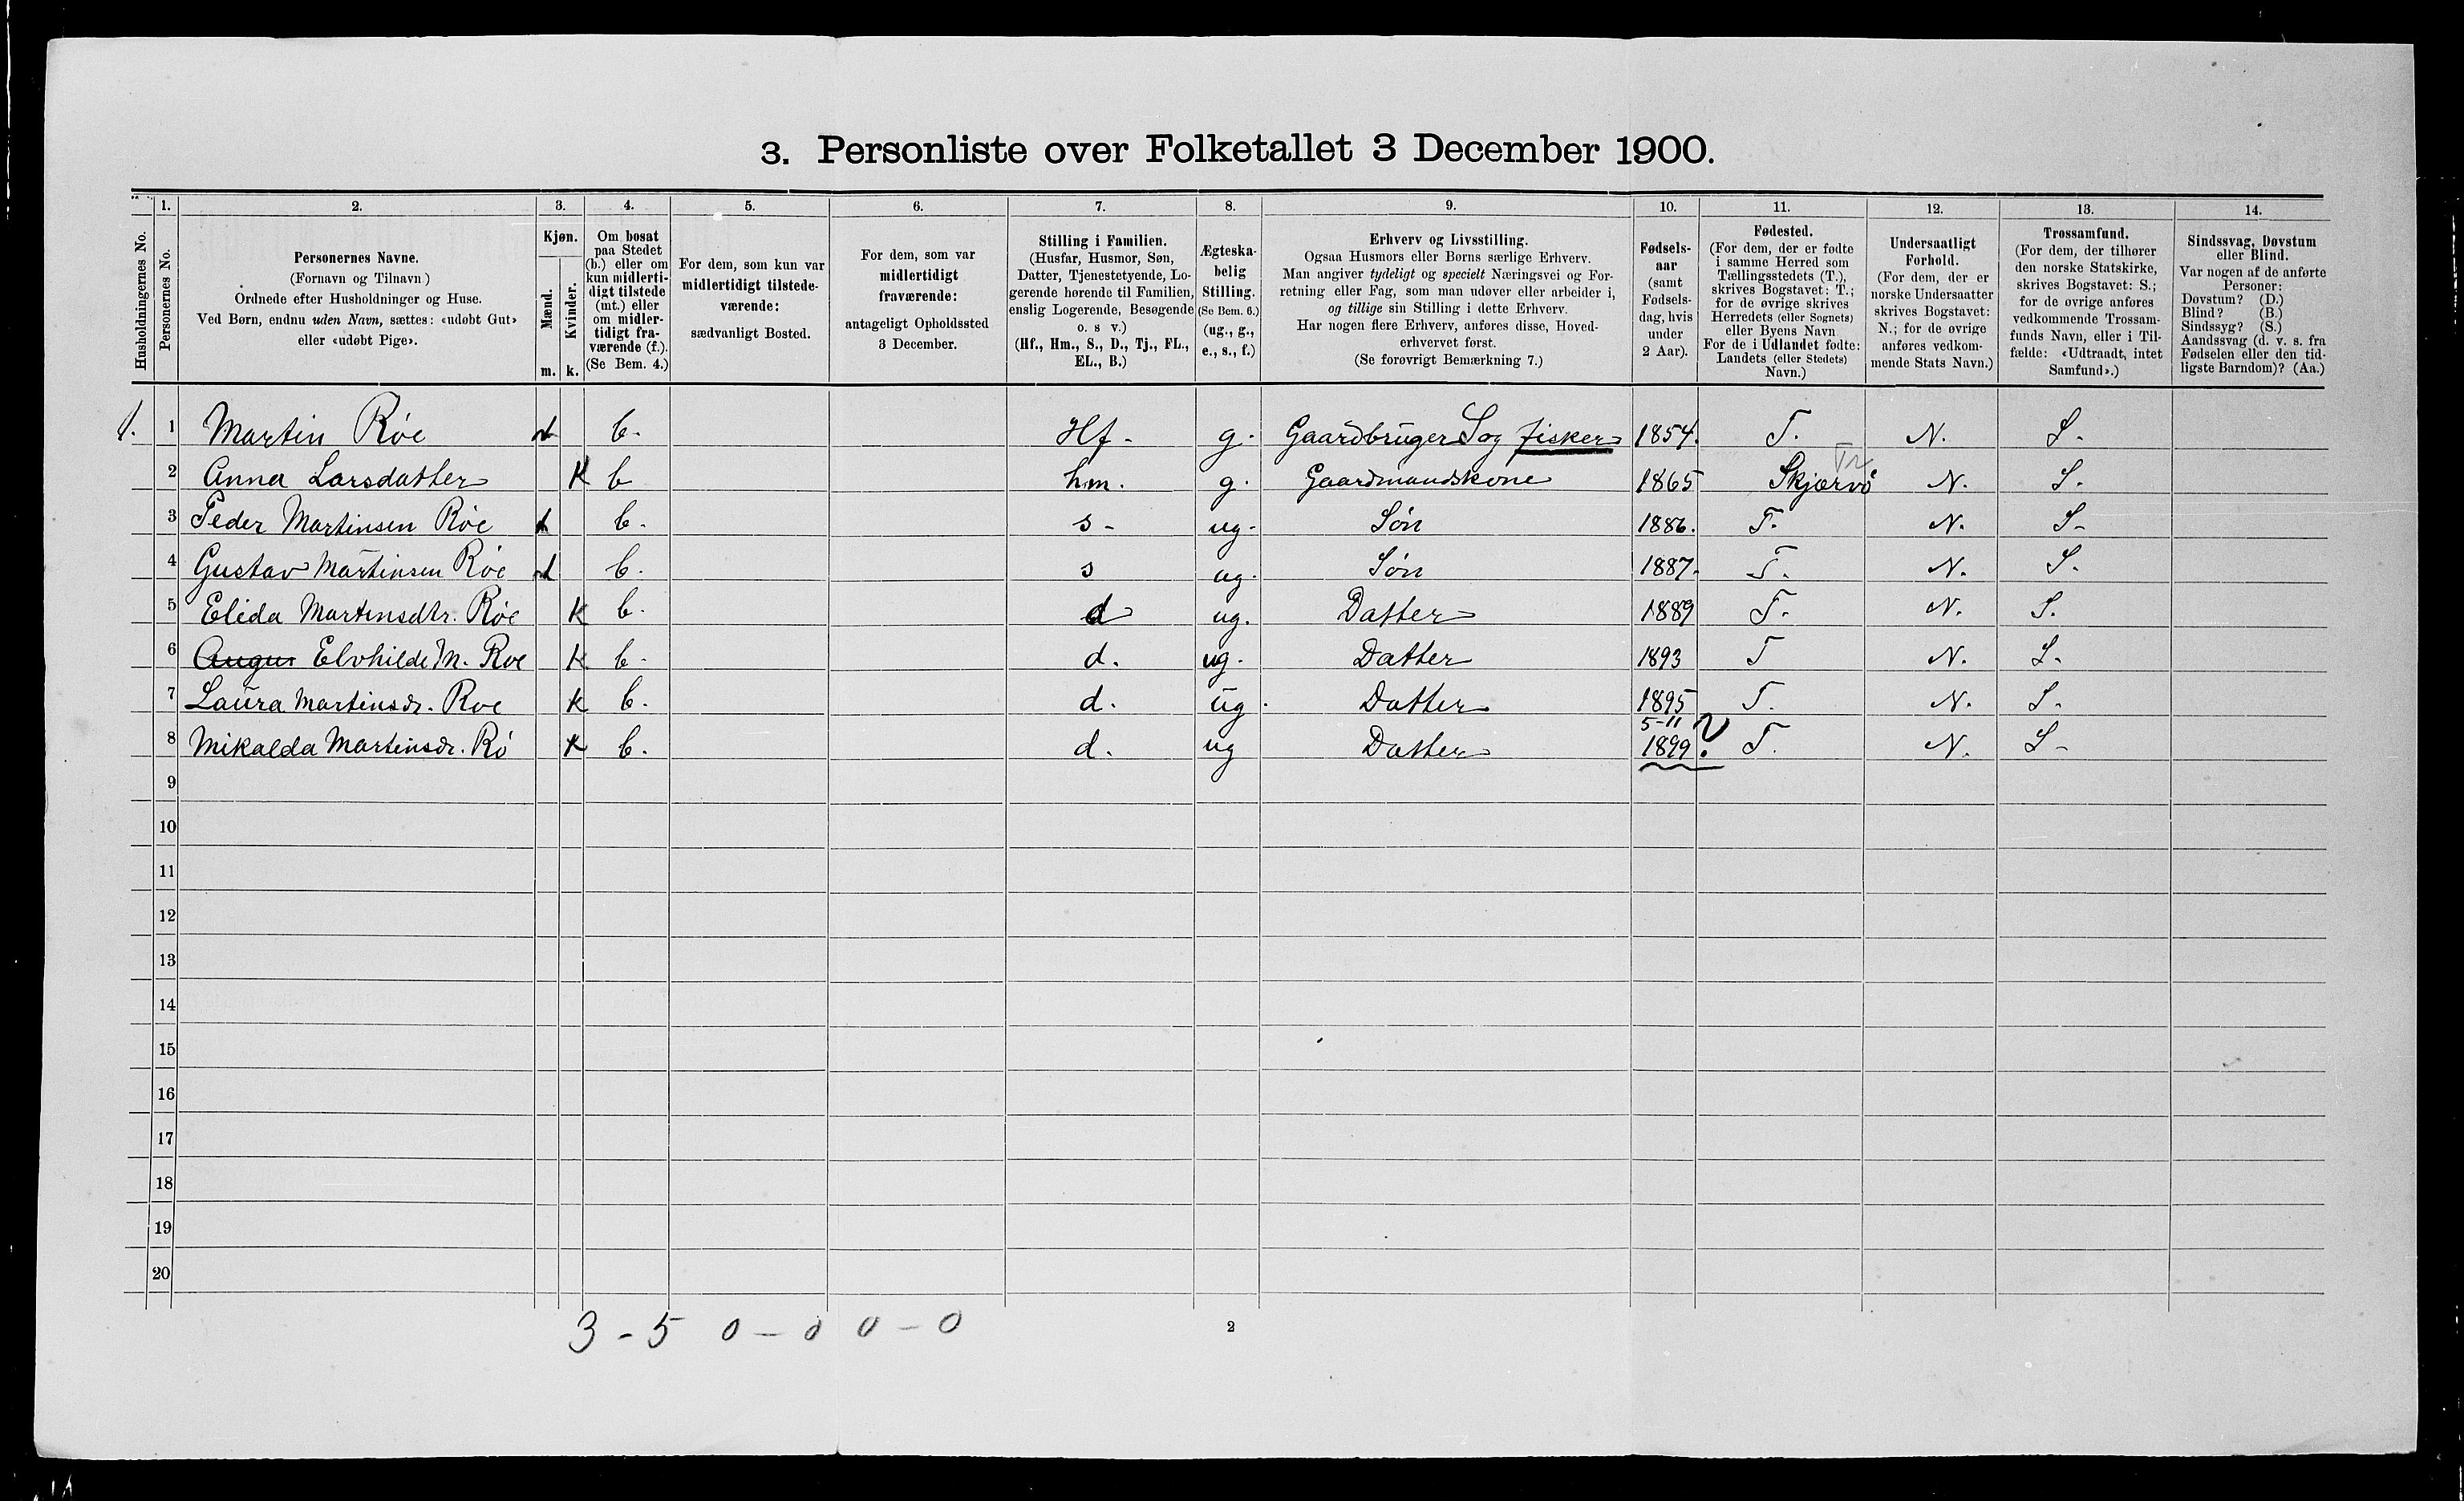 3. Personliste over Folketallet 3 December 1900.
1. 2. 3. 4. 5. 6. 7. 8. 9. 10. 11. 12. 13. 14.
Husholdningernes No.
Personernes No.
Personernes Navne.
(Fornavn og Tilnavn)
Ordnede efter Husholdninger og Huse.
Ved Børn, endnu uden Navn, sættes: «udøbt Gut»
eller «udøbt Pige».
Kjøn.
Mænd.
Kvinder.
m. k.
Om bosat
paa Stedet
(b.) eller om
kun midlerti-
digt tilstede
(mt.) eller
om midler-
tidigt fra-
værende (f.).
(Se Bem. 4.)
For dem, som kun var
midlertidigt tilstede-
værende:
sædvanligt Bosted.
For dem, som var
midlertidigt
fraværende:
antageligt Opholdssted
3 December.
Stilling i Familien.
(Husfar, Husmor, Søn,
Datter, Tjenestetyende, Lo-
gerende hørende til Familien,
enslig Logerende, Besøgende
o. s v.)
(Hf., Hm., S., D., Tj., FL.,
EL., B.)
Ægteska-
belig
Stilling.
(Se Bem. 6.)
(ug., g.,
e., s., f.)
Erhverv og Livsstilling.
Ogsaa Husmors eller Børns særlige Erhverv.
Man angiver tydeligt og specielt Næringsvei og For-
retning eller Fag, som man udøver eller arbeider i,
og tillige sin Stilling i dette Erhverv.
Har nogen flere Erhverv, anføres disse, Hoved-
erhvervet først.
(Se forøvrigt Bemærkning 7.)
Fødsels-
aar
(samt
Fødsels-
dag, hvis
under
2 Aar).
Fødested.
(For dem, der er fødte
i samme Herred som
Tællingsstedets (T.),
skrives Bogstavet: T.;
for de øvrige skrives
Herredets (eller Sognets)
eller Byens Navn
For de i Udlandet fødte:
Landets (eller Stedets)
Navn.)
Undersaatligt
Forhold.
(For dem, der er
norske Undersaatter
skrives Bogstavet:
N.; for de øvrige
anføres vedkom-
mende Stats Navn.)
Trossamfund.
(For dem, der tilhører
den norske Statskirke,
skrives Bogstavet: S.;
for de øvrige anføres
vedkommende Trossam-
funds Navn, eller i Til-
fælde: «Udtraadt, intet
Samfund».)
Sindssvag, Døvstum
eller Blind.
Var nogen af de anførte
Personer:
Døvstum? (D.)
Blind? (B.)
Sindssyg? (S.)
Aandssvag (d. v. s. fra
Fødselen eller den tid-
ligste Barndom)? (Aa.)
1. 1 Martin Róe b. Hf - g. Gaardbruger S og fisker 1854. T. N. S.
2 Anna Larsdatter K b hm. g. Gaardmandskone 1865 Skjærvö Tr N. S.
3 Peder Martinsen Róe b. s - ug. Són 1886. T. N. S-
4 Gustav Martinsen Róe b. s ug. Són 1887. T. N. S.
5 Elida Martinsdtr. Róe K b. d ug. Datter 1889 T. N. S.
6 Elvhilde M. Roe K b. d. ug. Datter 1893 T N. S.
7 Laura Martinsdr. Roe K b. d. ug. Datter 1895 T. N. S.
8 Mikalda Martinsdr. Ró K b. d. ug Datter 5-11 1899 ? T. N. S-
9
10
11
12
13
14
15
16
17
18
19
20
3 - 5 0 - 0 0 - 0
2